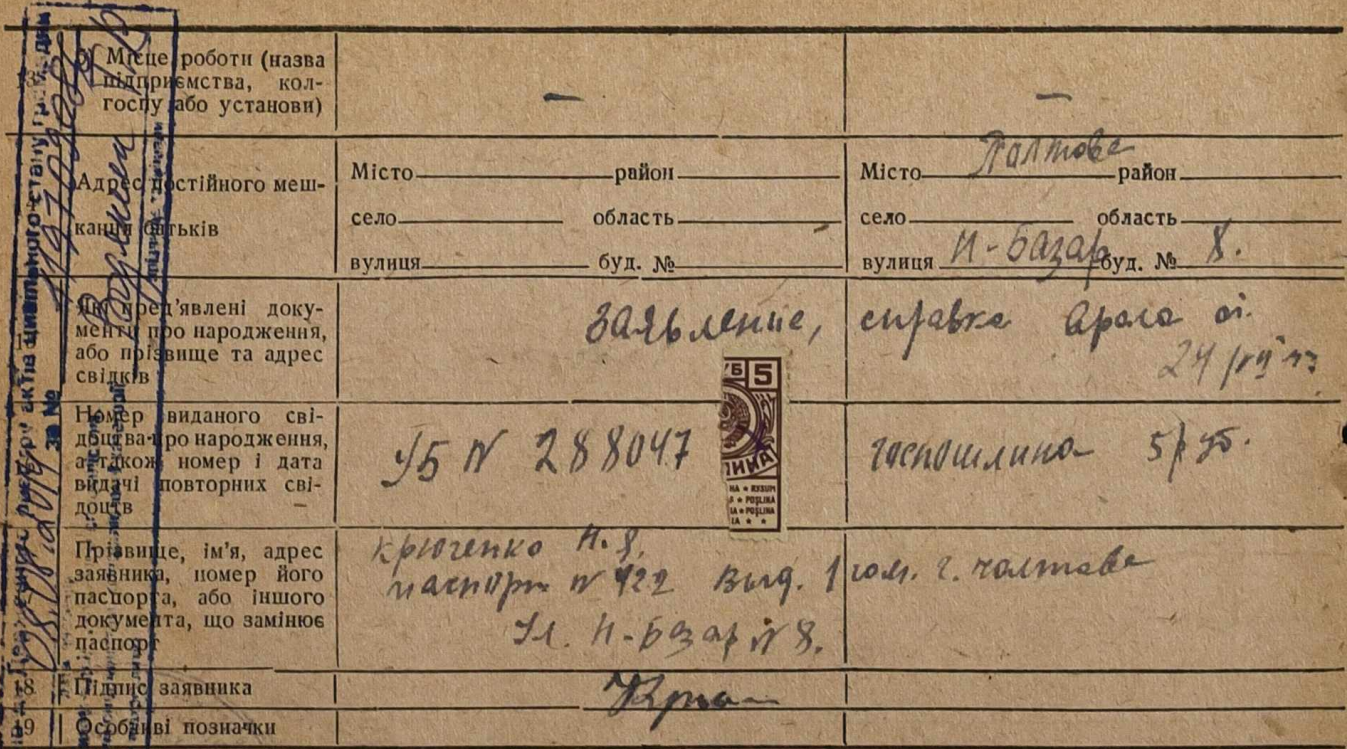 Місце роботи (назва
підприємства, кол-
госпу або установи)
— —
Адрес постійного меш-
кання батьків
Місто район Місто Полтова район
село область село область
вулиця буд. № вулиця Н-Базар буд. № 8.
Які пред'явлені доку-
менти про народження,
або прізвище та адрес
свідків
заявление, справка
Номер виданого сві-
доцтва про народження,
а також номер і дата
видачі повторних сві-
доцтв
УБ N 288047
5
госпошлина 5 руб.
Прізвище, ім'я, адрес
заявника, номер його
паспорта, або іншого
документа, що замінює
паспорт
Крюченко Н. Я.
паспорт N 422 выд. 1 г. Полтова
Ул. Н-Базар N 8.
18 Підпис заявника
19 Особливі позначки
актів цивільного стану
за №